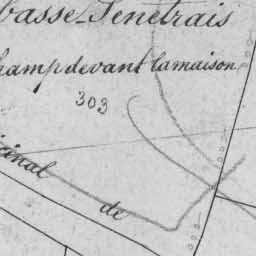 basse Penetrais
hamp devant la maison
303
cinal
de